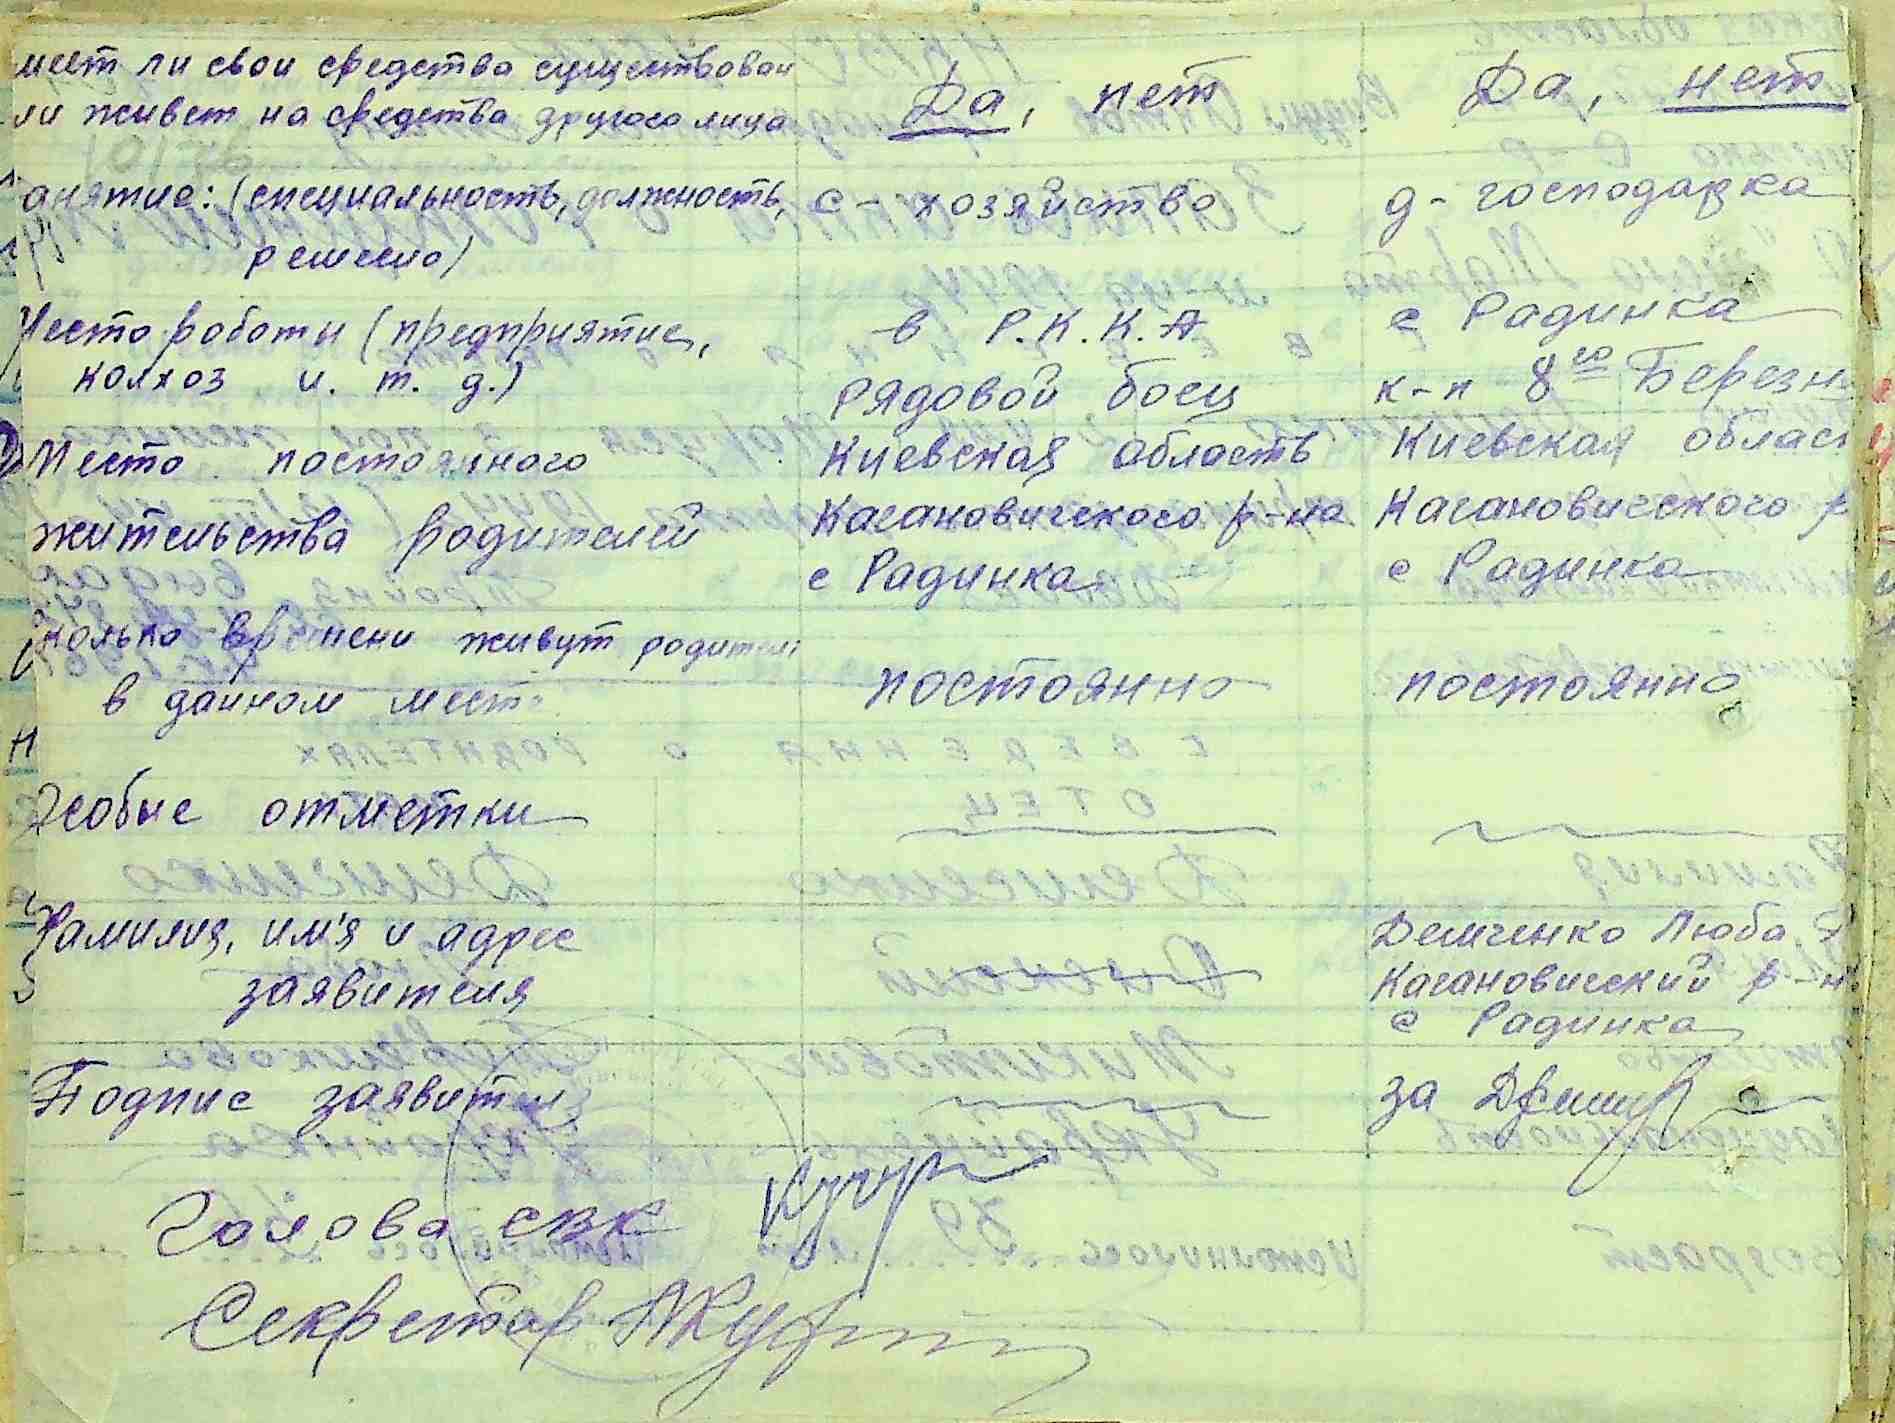 меет ли свои средства существован Да, нет Да, нет
ли живет на средства другого лица
анятие: (специальность, должность, с-хозяйство д-господарка
ремесло)
Место работы (предприятие, в Р.К.К.А с Радинка
колхоз и. т. д.) рядовой боец к-п 8го Березн
Место постоянного Киевская область Киевская област
жительства родителей Кагановичского р-на Кагановичского р
с Радинка с Радинка
сколько времени живут родители
в данном мест постоянно постоянно
Особые отметки
Фамилия, им'я и адрес Демченко Люба
заявителя Кагановичский р-н
с Радинка
Подпис заявител за
Голова СВК
Секретар